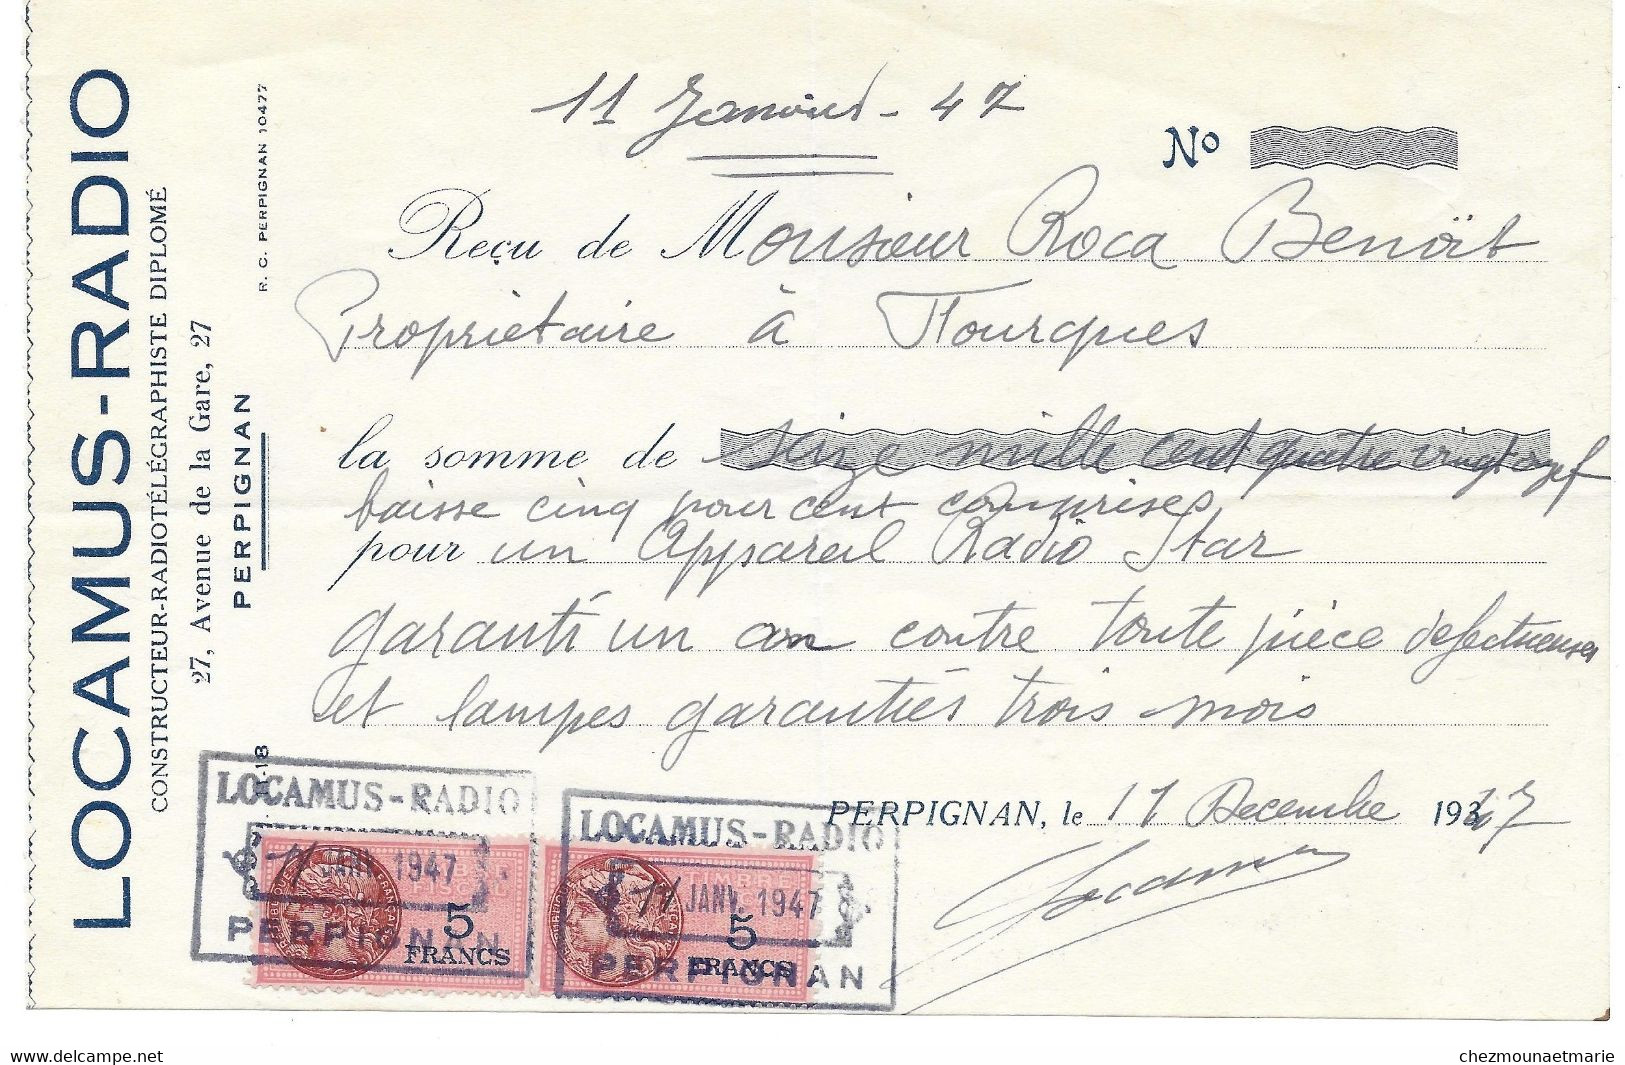 LOCAMUS-RADIO
CONSTRUCTEUR-RADIOTÉLÉGRAPHISTE DIPLOMÉ
27, Avenue de la Gare, 27
PERPIGNAN
R. C. PERPIGNAN 10477
11 Janvier - 47
No
Reçu de Monsieur Roca Benoït
Propriétaire à Tourques
la somme de seize mille cent quatre vingt
baisse cinq pour cent comprises
pour un Appareil Radio Star
garanti un an contre toute pièce defectueuses
et lampes garanties trois mois
PERPIGNAN, le 11 Decembre 1947
Locamus
LOCAMUS-RADIO
11 JANV. 1947
5
FRANCS
PERPIGNAN
LOCAMUS-RADIO
11 JANV. 1947
5
FRANCS
PERPIGNAN
www.delcampe.net
chezmounaetmarie